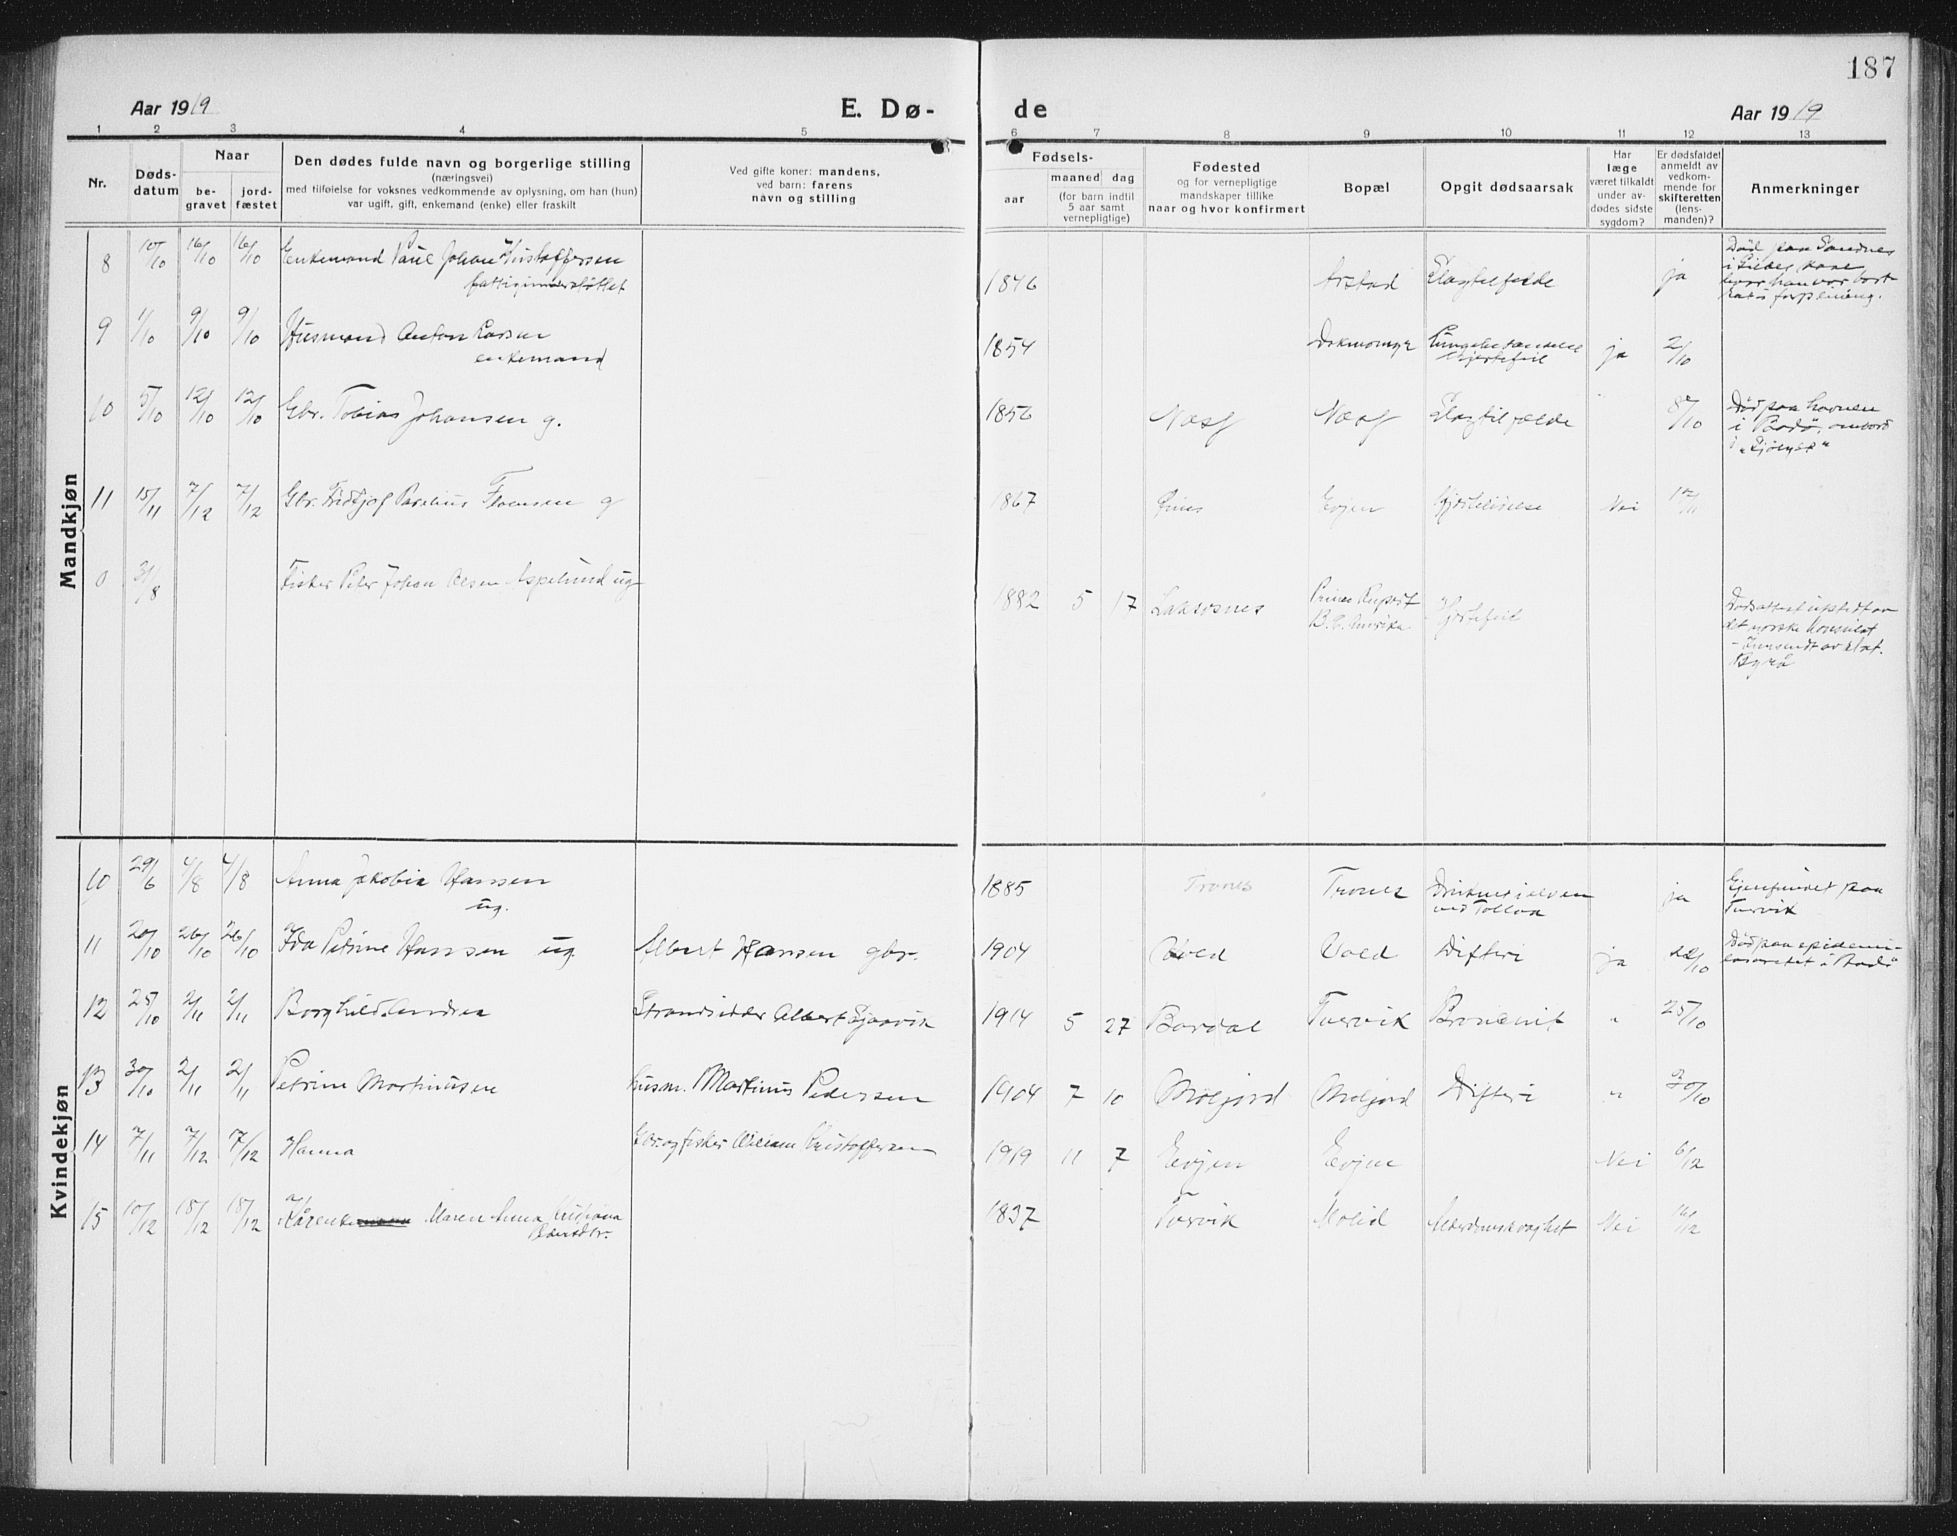 187
Aar 1919 E. Dø- de Aar 1919
1 2 3 4 5 6 7 8 9 10 11 12 13
Nr.
Døds-
datum
Naar
be-
gravet
jord-
fæstet
Den dødes fulde navn og borgerlige stilling
(næringsvei)
med tilføielse for voksnes vedkommende av oplysning, om han (hun)
var ugift, gift, enkemand (enke) eller fraskilt
Ved gifte koner: mandens,
ved barn: farens
navn og stilling
Fødsels-
aar
maaned dag
(for barn indtil
5 aar samt
vernepligtige)
Fødested
og for vernepligtige
mandskaper tillike
naar og hvor konfirmert
Bopæl
Opgit dødsaarsak
Har
læge
været tilkaldt
under av-
dødes sidste
sygdom?
Er dødsfaldet
anmeldt av
vedkom-
mende for
skifteretten
(lens-
manden)?
Anmerkninger
Mandkjøn
8 10/10 16/10 16/10 Enkemand Paul Johan Kristoffersen
fattigunderstøttet
1846 Arstad Slagtilfælde ja
Død paa Sandnes
hvor han var bort
sat i forpleining.
9 1/10 9/10 9/10 Husmand Anton Larsen
enkemand
1854 Lungebetændelse
Hjertefeil
ja 2/10
10 5/10 12/10 12/10 Gbr. Tobias Johansen g.
1856 Næss Næss Slagtilfælde " 8/10
Død paa havnen
i Bodø, ombord
11 15/11 7/12 7/12 Gbr. Fridtjof Parelius g
1867 Evjen Hjertelidelse Nei 17/11
0 31/8 Fisker Peter Johan Olsen Aspelund ug
1882 5 17 Laksosnes
Prince Rupert
B. C. Amerika
Hjertefeil
Dødsattest utstedt av
det norske konsulat
- Innsendt av Stat.
Byrå
Kvindekjøn
10 29/6 4/8 4/8 Anna Jakobia Hansen
ug.
1885 Trones Trones Druknet i elven
ja
Gjenfundet paa
Tuvvik
11 20/10 26/10 26/10 Ida Petrine Hansen ug. Albert Hansen gbr.
1904 Vold Vold Difteri ja 22/10
Død paa epidemi-
lasarettet i Bodø
12 25/10 2/11 2/11 Borghild Andrea Strandsidder Albert
1914 5 27 Bardal Tuvvik Bronchit " 25/10
13 30/10 2/11 2/11 Petrine Martinusen husm. Martinus Pedersen
1904 7 10 Moljord Moljord Difteri " 30/10
14 7/11 7/12 7/12 Hanna Gbr. og fisker William Kristoffersen
1919 11 7 Evjen Evjen Nei 6/12
15 10/12 18/12 18/12 Maren Anna Kristiana
1837 Tuvvik Molid Alderdomssvaghet Nei 16/12